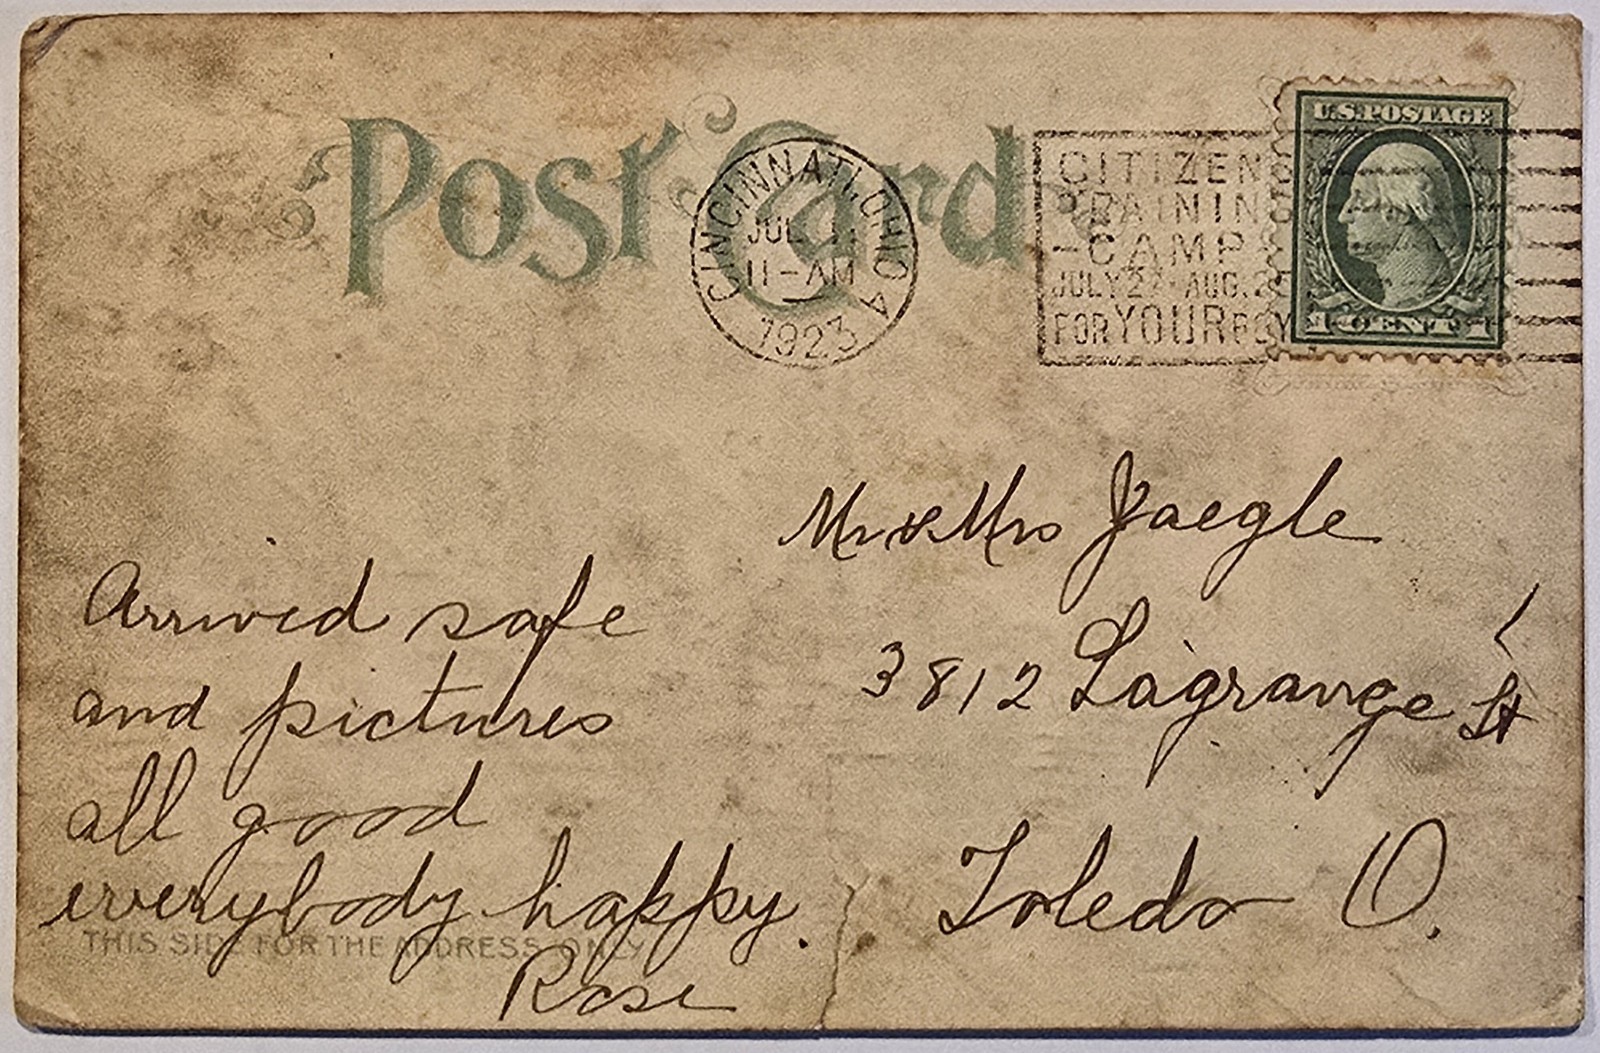 Post Card
CINCINNATI, OHIO A
JUL
11-AM
1923
CITIZENS
TRAINING
-CAMP
JULY 27-AUG. 2
FOR YOUR BOY
U.S. POSTAGE
1 CENT 1
Mr & Mrs Jaegle
3812 Lagrange St
Toledo O.
Arrived safe
and pictures
all good
everybody happy.
THIS SIDE FOR THE ADDRESS ONLY
Rose